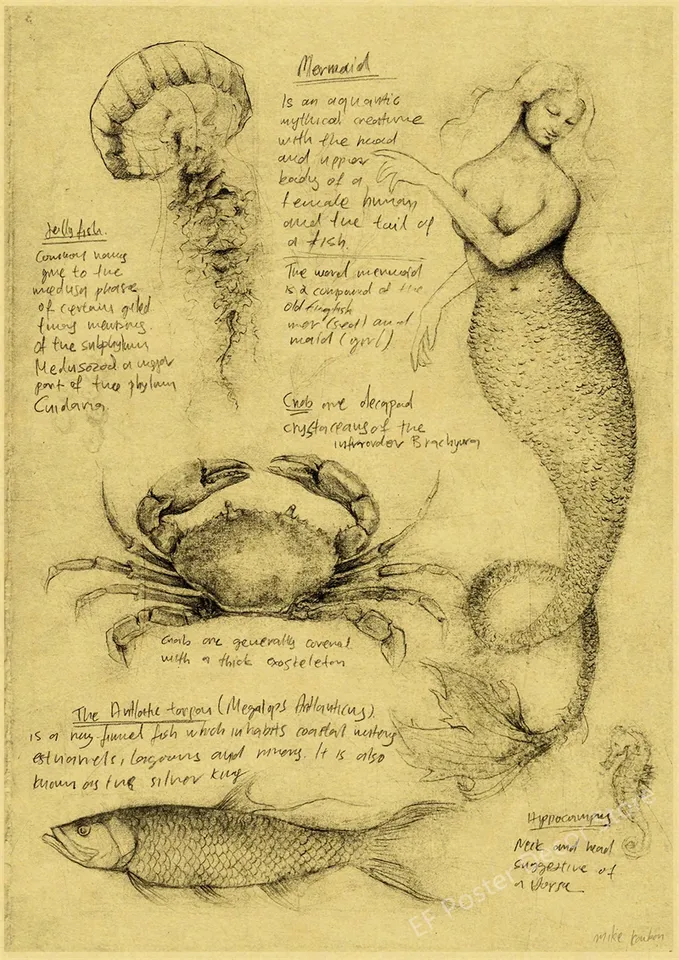 Mermaid
Is an aquantic
mythical creature
with the head
and upper
body of a
female human
and the tail of
a fish.
The word mermaid
is a compound of the
old english
mer (sea) and
maid (girl)
Jelly fish.
Common names
give to the
medusa phase
of certain
of the subphylum
Medusozoa a major
part of the phylum
Cnidaria.
Crab are decapod
crystaceans of the
infraorder Brachyura
Crab are generally covered
with a thick exoskeleton
The Atlantic tarpon (Megalops Atlanticus)
is a ray finned fish which inhabits coastal waters
estuaries, lagoons and rivers. It is also
known as the silver king
Hippocampus
Neck and head
suggestive of
a horse
EF Poster
mike